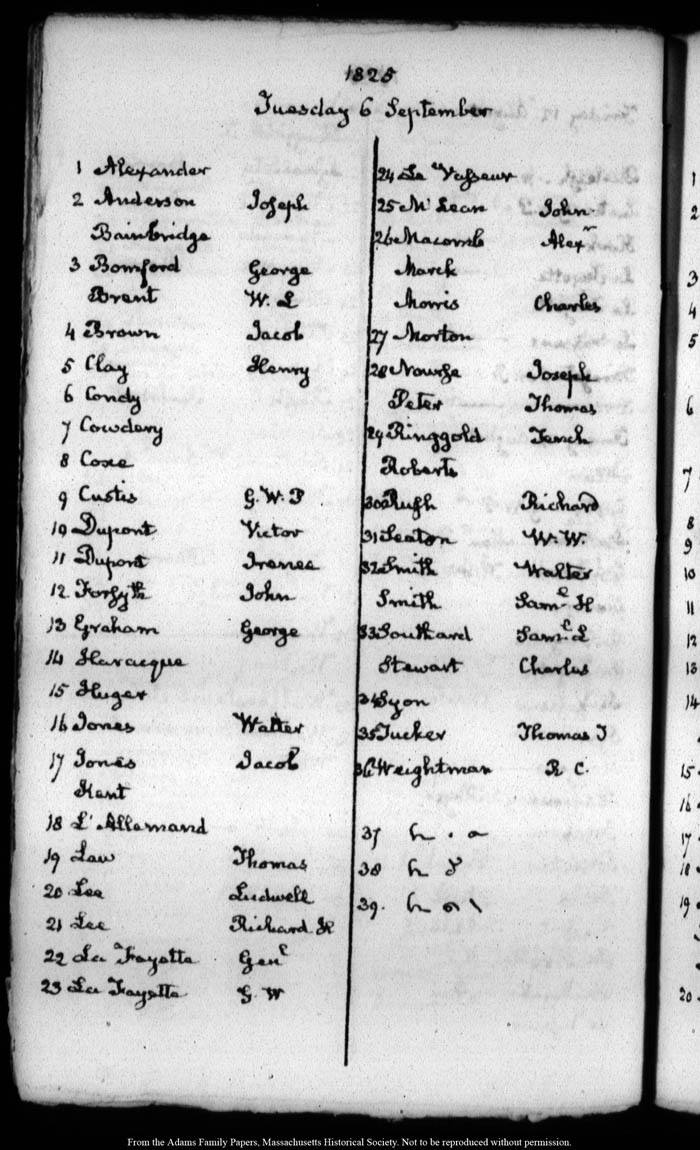 1825
Tuesday 6 September
1 Alexander
2 Anderson Joseph
Bainbridge
3 Bomford George
Brent W. L
4 Brown Jacob
5 Clay Henry
6 Condy
7 Cowdery
8 Coxe
9 Custis G. W. P
10 Dupont Victor
11 Dupont Irenee
12 Forsyth John
13 Graham George
14 Haracque
15 Huger
16 Jones Walter
17 Jones Jacob
Kent
18 L'Allemand
19 Law Thomas
20 Lee Ludwell
21 Lee Richard H
22 La Fayette Genl
23 La Fayette G. W
24 Le Vasseur
25 Mc Lean John
26 Macomb Alexr
Marck
Morris Charles
27 Morton
28 Nourse Joseph
Peter Thomas
29 Ringgold Tench
Roberts
30 Rush Richard
31 Seaton W. W.
32 Smith Walter
Smith Saml H
33 Southard Saml L
Stewart Charles
34 Syon
35 Tucker Thomas T
36 Weightman R C.
37
38
39.
1
2
3
4
5
6
7
8
9
10
11
12
13
14
15
16
17
18
19
20
From the Adams Family Papers, Massachusetts Historical Society. Not to be reproduced without permission.